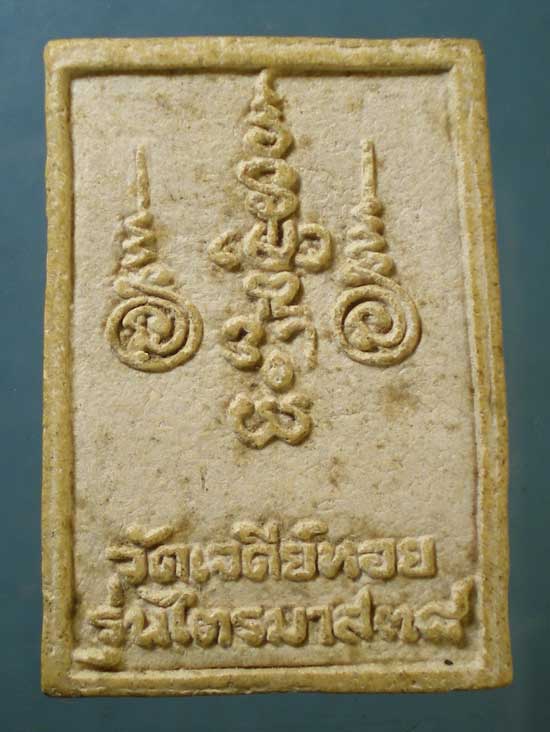 วัดเจดีย์หอย
รุ่นไตรมาส๓๘